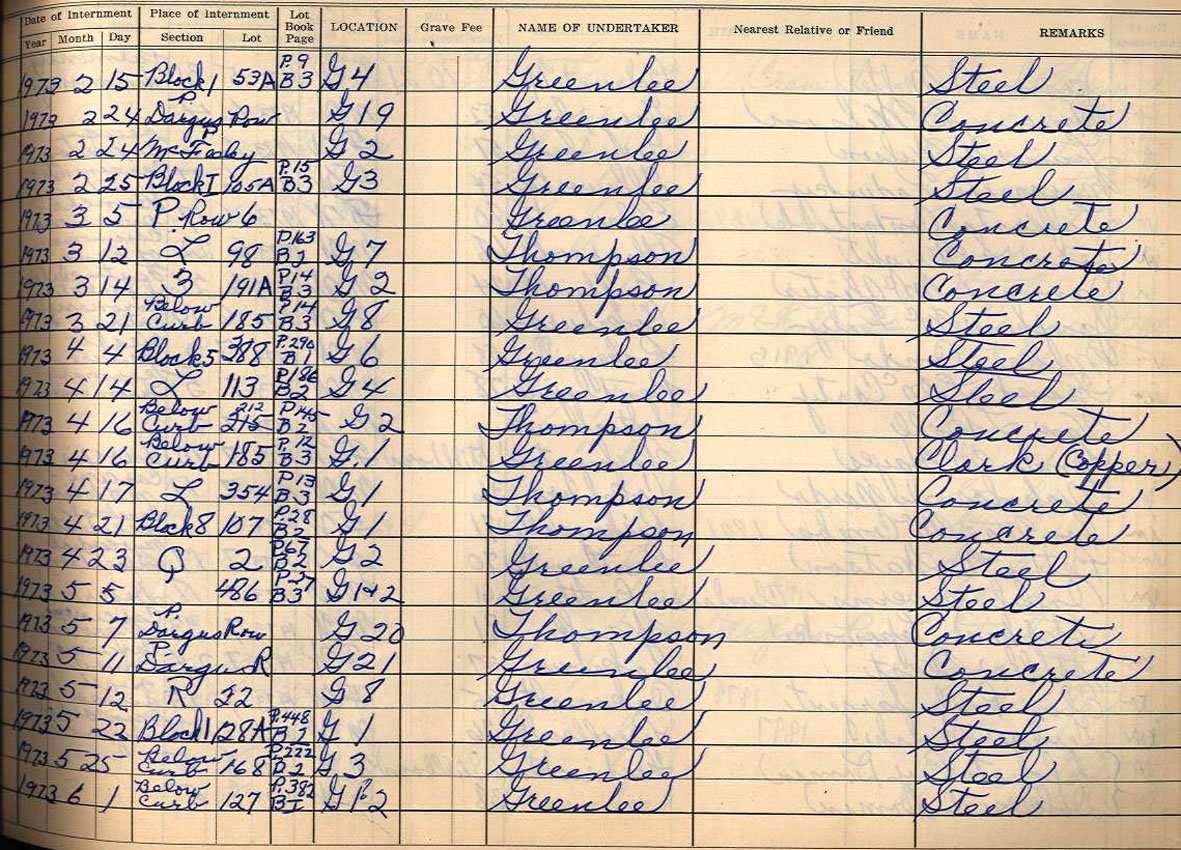 Date of Internment Place of Internment Lot Book Page LOCATION Grave Fee NAME OF UNDERTAKER Nearest Relative or Friend REMARKS
Year Month Day Section Lot
1973 2 15 Block 1 53A P.9 B3 G4 Greenlee Steel
1973 2 24 P. Dargus Row G19 Greenlee Concrete
1973 2 24 P McFeely G2 Greenlee Steel
1973 2 25 Block I 105A P.15 B3 G3 Greenlee Steel
1973 3 5 P. Row 6 Greenlee Concrete
1973 3 12 L 98 P163 B2 G7 Thompson Concrete
1973 3 14 3 191A P14 B3 G2 Thompson Concrete
1973 3 21 Below Curb 185 P14 B3 G8 Greenlee Steel
1973 4 4 Block 5 388 P.290 B1 G6 Greenlee Steel
1973 4 14 L 113 P186 B2 G4 Greenlee Steel
1973 4 16 Below Curb 212 215 P145 B2 G2 Thompson Concrete
1973 4 16 Below Curb 185 P.12 B3 G.1 Greenlee Clark (Copper)
1973 4 17 L 354 P13 B3 G1 Thompson Concrete
1973 4 21 Block 8 107 P.28 B2 G1 Thompson Concrete
1973 4 23 Q 2 P.67 B2 G2 Greenlee Steel
1973 5 5 486 P.27 B3 G1+2 Greenlee Steel
1973 5 7 P. Dargus Row G20 Thompson Concrete
1973 5 11 P. Dargus R G21 Greenlee Concrete
1973 5 12 R 22 G8 Greenlee Steel
1973 5 22 Block 1 28A P.448 G1 Greenlee Steel
1973 5 25 Below Curb 168 P.222 B.2 G3 Greenlee Steel
1973 6 1 Below Curb 127 P.382 BI Greenlee Steel